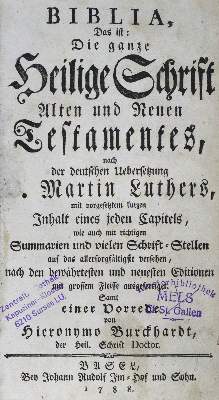 BIBLIA,
Das ist:
Die ganze
Heilige Schrift
Alten und Neuen
Testamentes,
nach
der deutschen Uebersetzung
. Martin Luthers,
mit vorgesetztem kurzen
Inhalt eines jeden Capitels,
wie auch mit richtigen
Summarien und vielen Schrift-Stellen
auf das allersorgfältigste versehen,
nach den bewährtesten und neuesten Editionen
mit grossem Fleisse ausgefertiget.
Samt
einer Vorrede
von
Hieronymo Burckhardt,
der Heil. Schrift Doctor.
BASEL,
Bey Johann Rudolf Im-Hof und Sohn.
MELS
St. Gallen
6210 Sursee LU